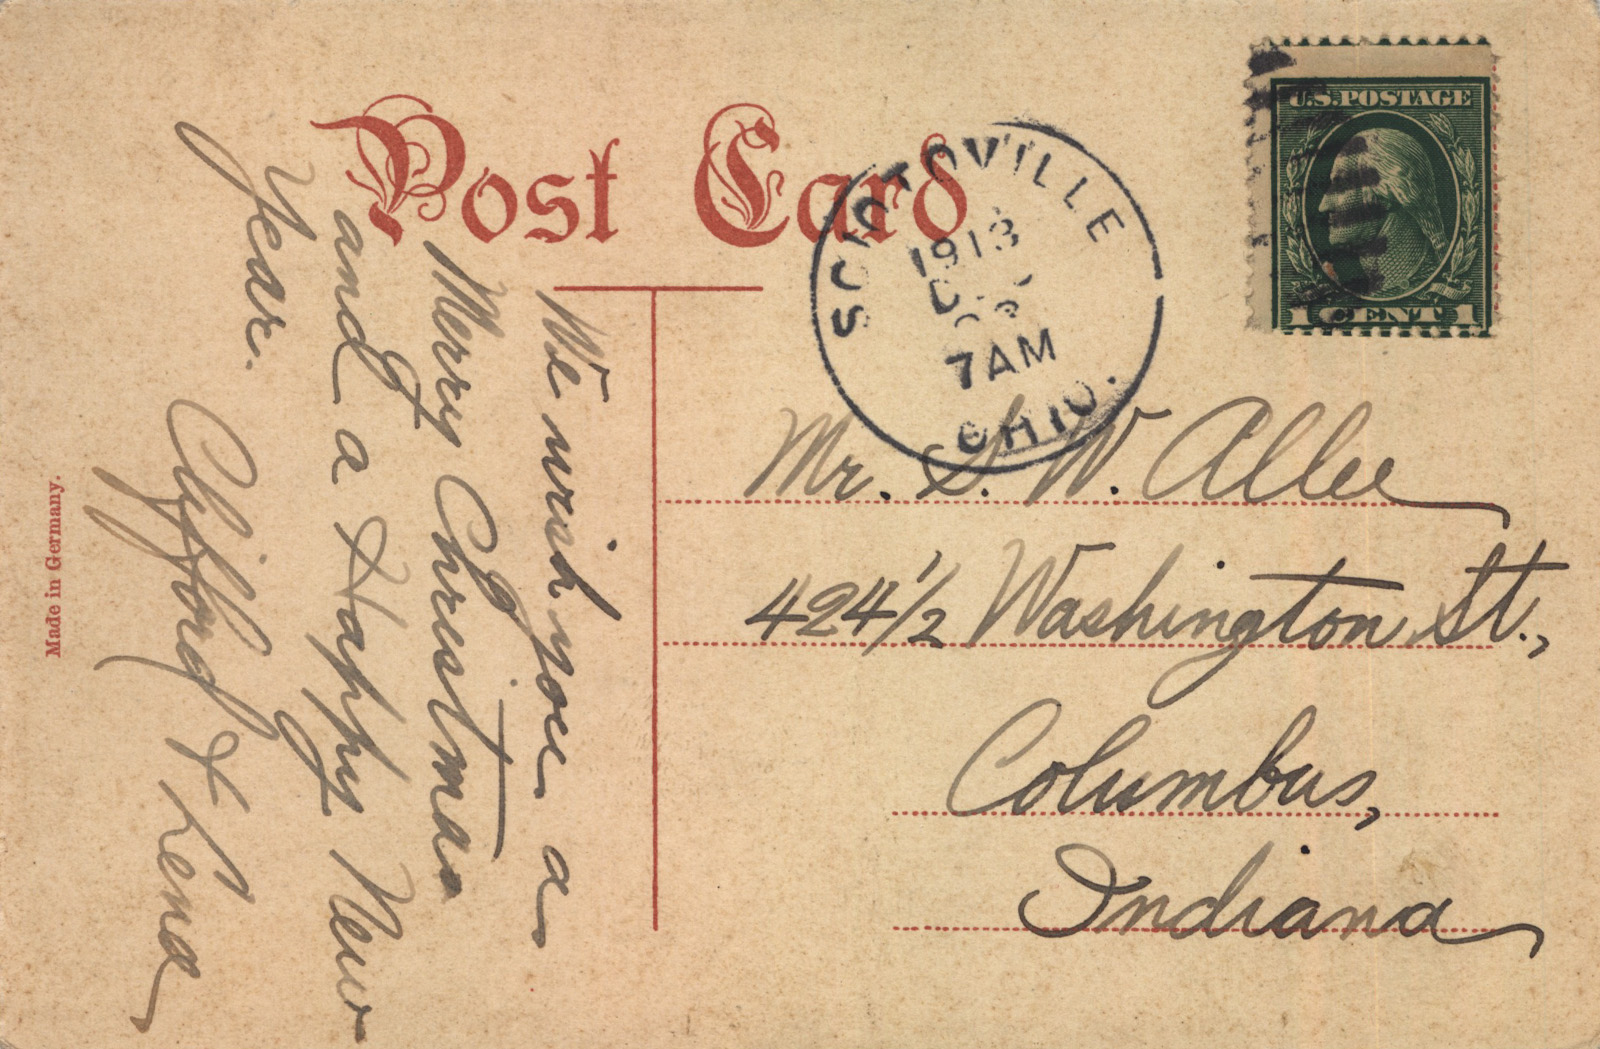 Post Card
U.S.POSTAGE
1 CENT 1
SCIOTOVILLE
1913
7AM
OHIO.
We wish you a
Merry Christmas
and a Happy New
Year.
Clifford & Lena
Mr. S. W. Allee
424 1/2 Washington St.,
Columbus,
Indiana
Made in Germany.